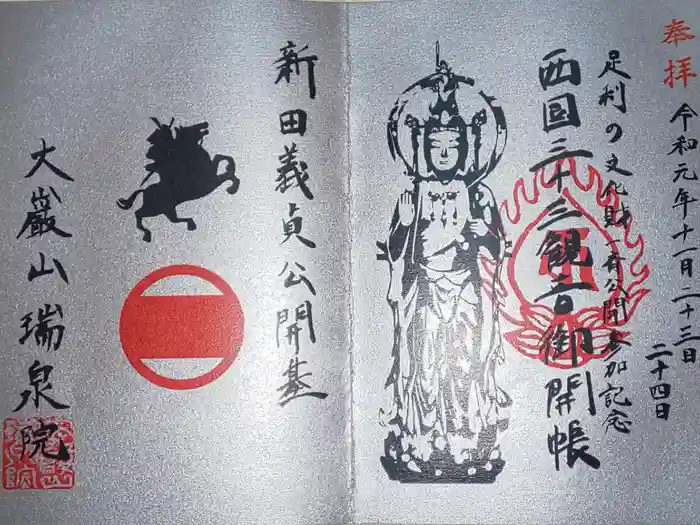 奉拝
令和元年十一月二十三日
二十四日
足利の文化財一斉公開参加記念
西国三十三観音御開帳
新田義貞公開基
大巖山瑞泉院